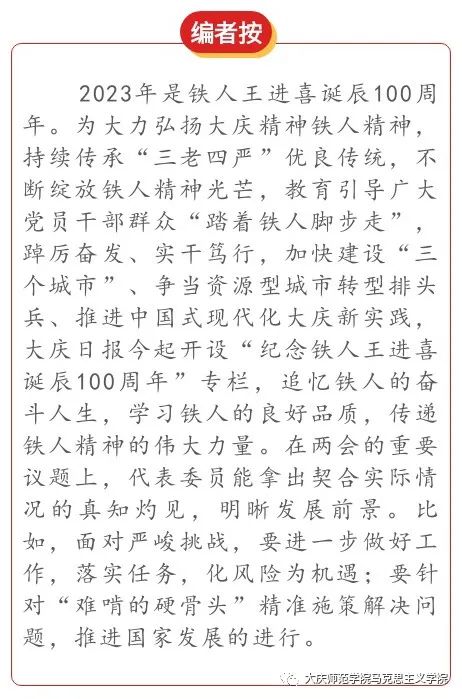 编者按
2023年是铁人王进喜诞辰100周
年。为大力弘扬大庆精神铁人精神，
持续传承“三老四严”优良传统，不
断绽放铁人精神光芒，教育引导广大
党员干部群众“踏着铁人脚步走”，
踔厉奋发、实干笃行，加快建设“三
个城市”、争当资源型城市转型排头
兵、推进中国式现代化大庆新实践，
大庆日报今起开设“纪念铁人王进喜
诞辰100周年”专栏，追忆铁人的奋
斗人生，学习铁人的良好品质，传递
铁人精神的伟大力量。在两会的重要
议题上，代表委员能拿出契合实际情
况的真知灼见，明晰发展前景。比
如，面对严峻挑战，要进一步做好工
作，落实任务，化风险为机遇；要针
对“难啃的硬骨头”精准施策解决问
题，推进国家发展的进行。
大庆师范学院马克思主义学院